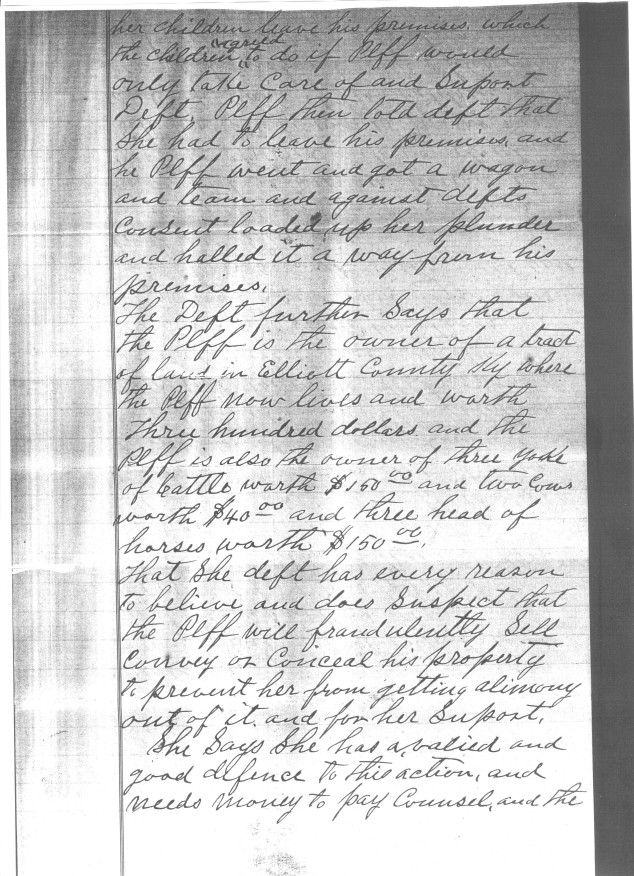 her children leave his premises. which
the children agreed to do if Plff would
only take care of and Suport
Deft. Plff then told deft that
She had to leave his premises, and
he Plff went and got a wagon
and team and against defts
Consent loaded up her plunder
and halled it a way from his
premises.
The Deft further Says that
the Plff is the owner of a tract
of land in Elliott County Ky where
the Plff now lives and worth
three hundred dollars. and the
Plff is also the owner of three yoke
of Cattle worth $150 00 and two Cows
worth $40 00 and three head of
horses worth $150 00.
that She deft has every reason
to believe and does Suspect that
the Plff will fraudulently Sell
Convey or Conceal his property
to prevent her from getting alimony
out of it. and for her Suport.
She Says She has a valied and
good defence to this action, and
needs money to pay Counsel, and the